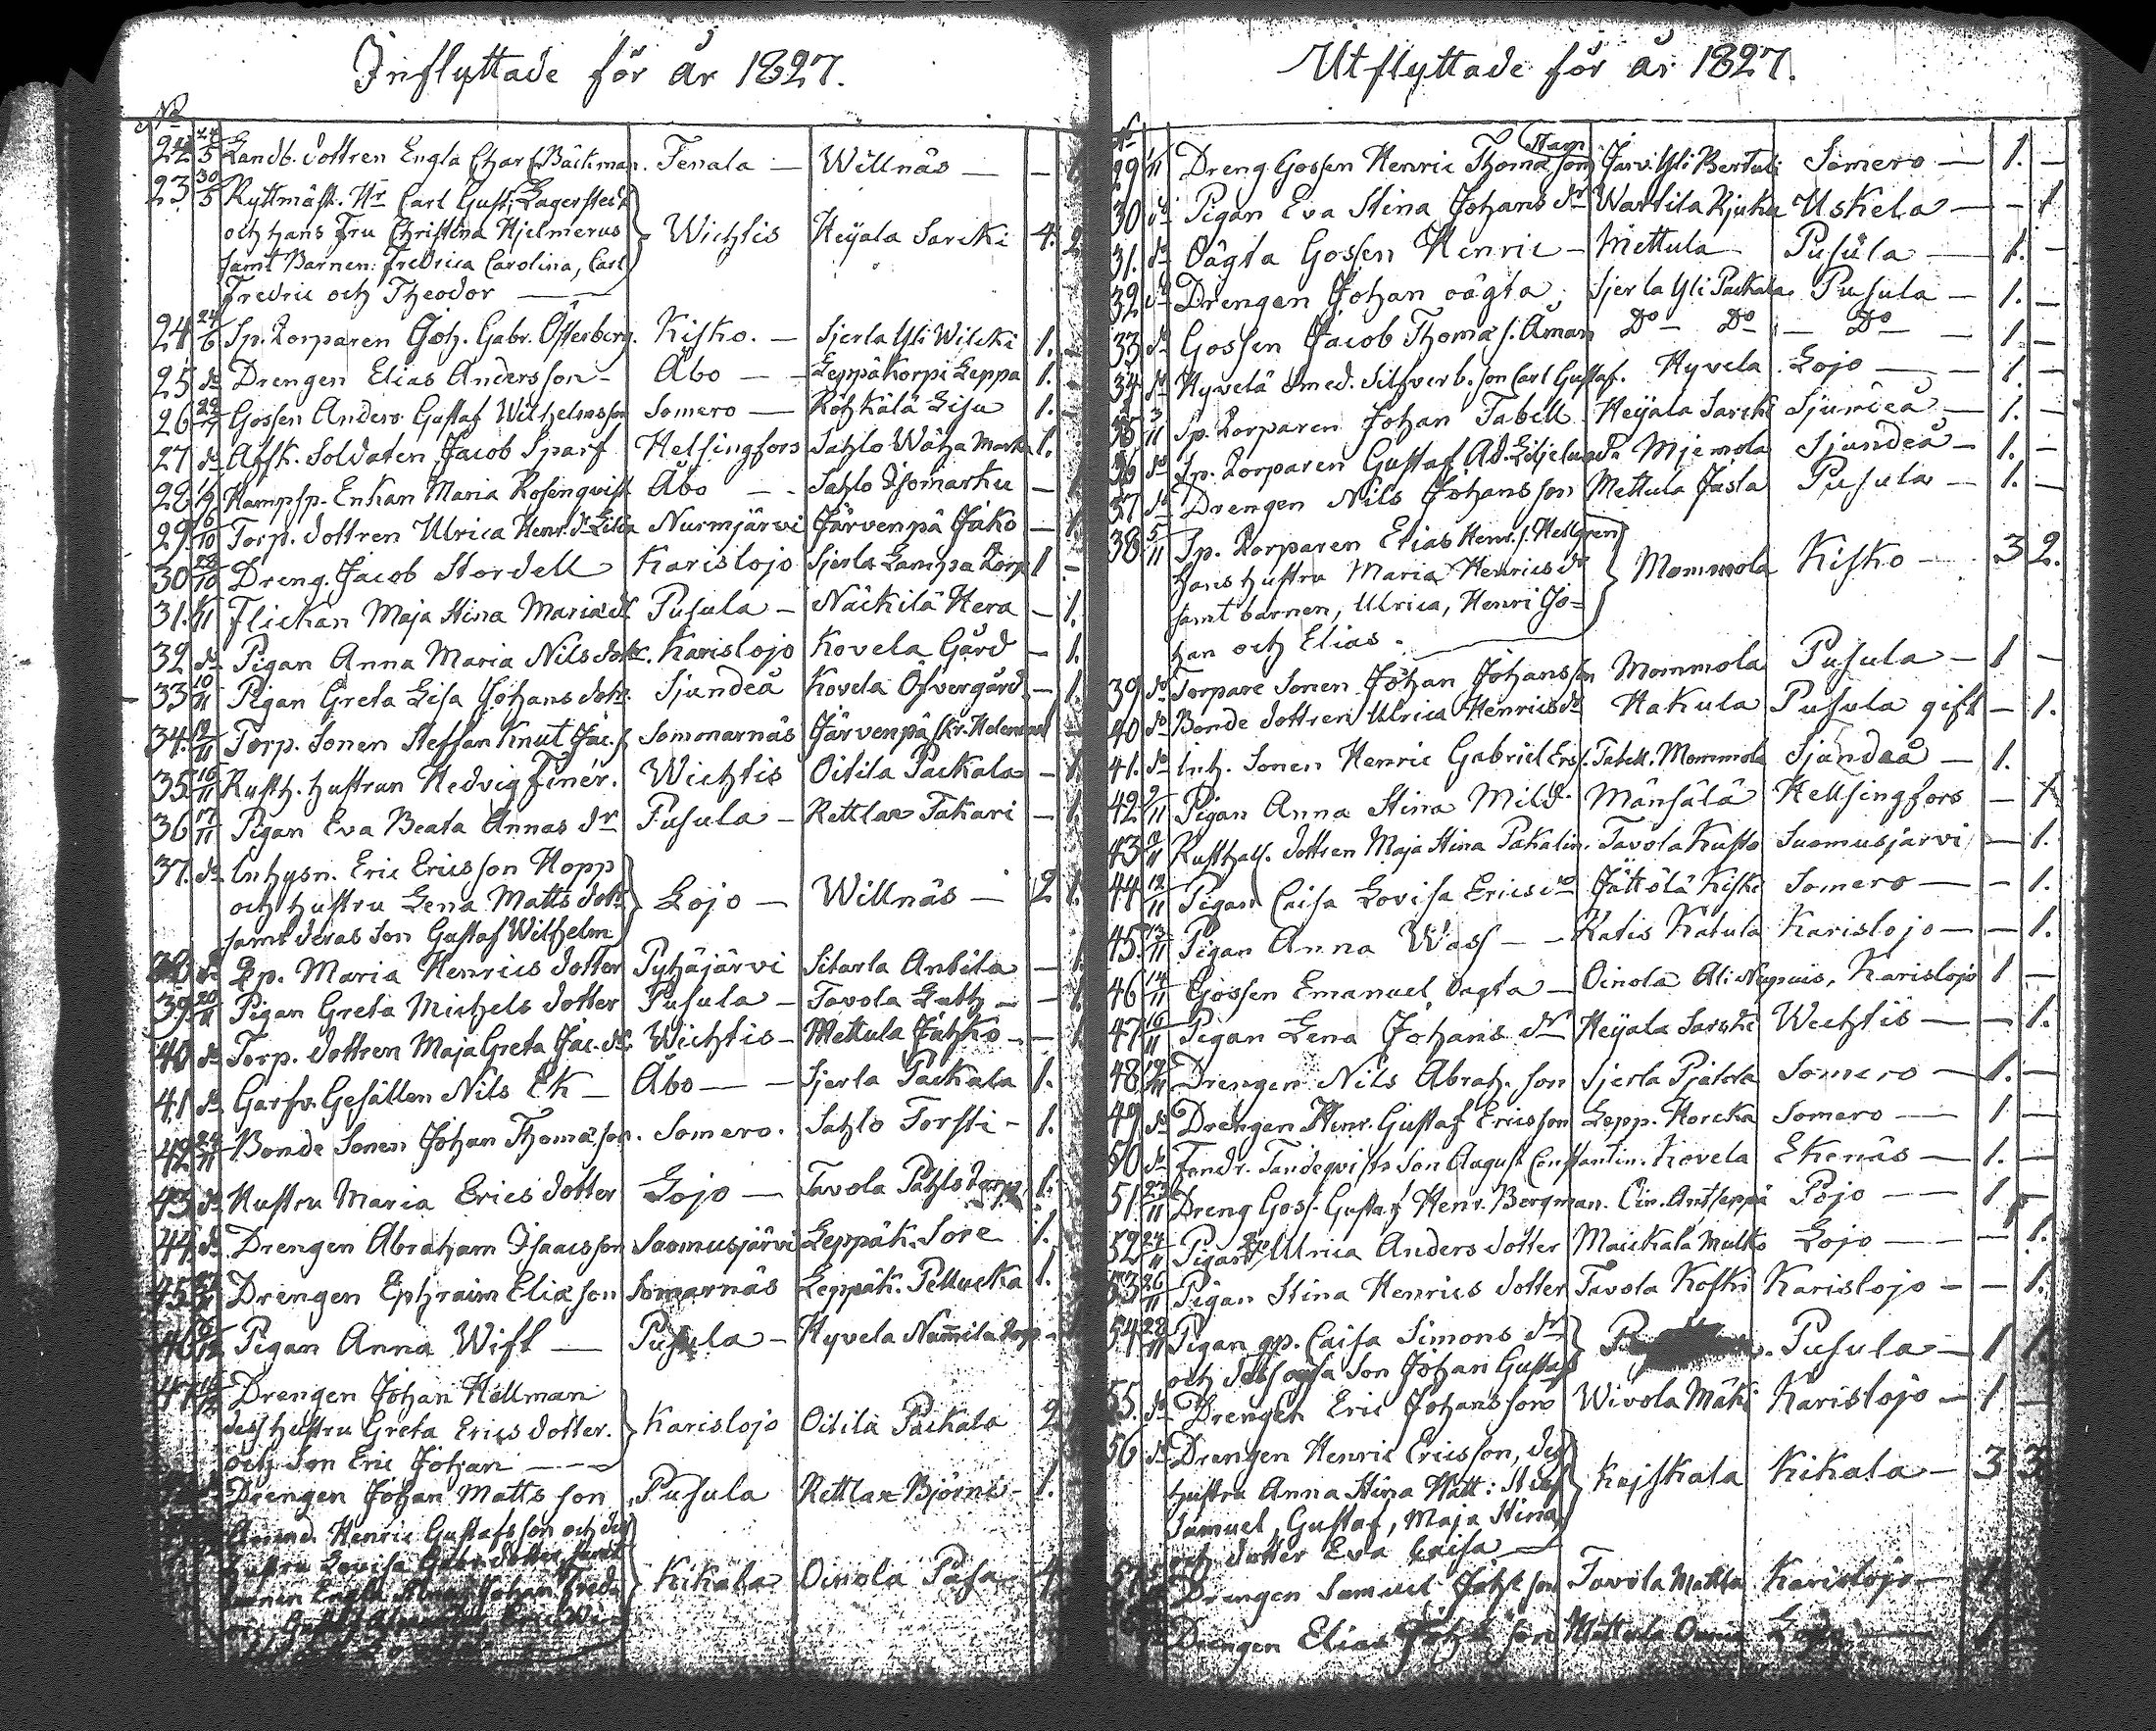 Inflyttade för år 1827.
No
22 24/5 Landb. dottren Engla Charl. Bäckman. Tenala — Willnäs — — 1
23. 30/5 Ryttmäst. Hr Carl Gust. Lagerstedt
och hans Fru Christina Hjelmerus Wichtis Heijala Sarcki 4. 2
samt Barnen: Fredrica Carolina, Carl
Fredric och Theodor —
24 24/6 Sp. Torparen Joh. Gabr. Österberg. Kisko. — Sjerla Yli Wilcki 1. –
25 do Drengen Elias Andersson – Åbo — Leppäkorpi Leppa 1.
26 Gossen Anders Gustaf Wilhelmsson Somero — Rohkälä Lisu 1.
27 do Afsk. Soldaten Jacob Sparf Helsingfors Sahlo Wäha Marku 1.
28 Kampsp. Enkan Maria Rosenqvist Åbo — Sahlo Isomarku —
29. 6/10 Torp. dottren Ulrica Henr. dr Lilia Nurmjärvi Järvenpä Jako — 1
30 Dreng. Jacob Stordell Karislojo Sjerla Lampa Torp 1 –
31. Flickan Maja Stina Mariæ dr Pusula — Näckilä Hera — 1.
32 do Pigan Anna Maria Nils dotr. Karislojo Kovela Gård — 1.
33 10/11 Pigan Greta Lisa Johans dotr. Sjundeå Kovela Öfvergård — 1.
34. 12/11 Torp. Sonen Steffan Knut Jac. s. Sommarnäs Järvenpä
35. 16/11 Rusth. hustrun Hedvig Finér. Wichtis Oitila Packala — 1.
36 17/11 Pigan Eva Beata Annas dr Pusula — Rettlax Takari — 1.
37. do Inhysn. Eric Ericsson Hopp
och hustru Lena Matts dotr Lojo — Willnäs — 2 1.
samt deras Son Gustaf Wilhelm
38 do Qp. Maria Henrics dotter Pyhäjärvi Sitarla Antila — 1.
39. 20/11 Pigan Greta Michels dotter Pusula — Tavola Lutty — — 1.
40 do Torp. dottren Maja Greta Jac. dr Wichtis — Mettula Jähko — — 1.
41 do Garfv. Gesällen Nils Ek — Åbo — — Sjerla Packala 1.
42. 24/11 Bonde Sonen Johan Thomæson. Somero. Sahlo Torsti – 1.
43 do Hustru Maria Erics dotter Lojo — Tavola Pahls Torp 1.
44. do Drengen Abraham Isaacsson Suomusjärvi Leppäk. Sore 1.
45 Drengen Ephraim Eliæson Somarnäs Leppäk. Pellucka 1.
46 Pigan Anna Wift — Pusula — Hyvela Nummila Torp –
47 Drengen Johan Hellman
dess hustru Greta Erics dotter. Karislojo Oitila Packala 2
och Son Eric Johan —
Drengen Johan Matts son Pusula Rettlax Björns – 1.
Arrend. Henric Gustafsson och dess
hustru Lovisa Gabr. dotter samt Kikala Oinola Pasa 4
barnen Engla Johan Fred.
Utflyttade för år 1827.
No
29 Dreng Gossen Henric Thomæson Stam Järv. Yli Bertali Somero — 1. —
30 do Pigan Eva Stina Johans dr Wartila Kjuka Uskela — – 1
31. do Oägta Gossen Henric – Mettula Pusula — 1. —
32 do Drengen Johan oägta, Sjerla Yli Packala Pusula — 1. —
33 do Gossen Jacob Thomæ s. Åman Do — Do — Do — 1 —
34 do Hyvelä Smed. Silfverb. son Carl Gustaf. Hyvela Lojo — — 1 —
35 3/11 Sp. Torparen Johan Tabell Heijala Sarcki Sjundeå — 1. —
36 do Sp. Torparen Gustaf Ad. Liljelund Mjemola Sjundeå — 1. —
37 do Drengen Nils Johansson Mettula Jasla Pusula — 1. —
38. 5/11 Sp. Torparen Elias Henr. s. Hellgren
hans hustru Maria Henrics dr Mommola Kisko — 3 2.
samt barnen, Ulrica, Henri Jo=
han och Elias. —
39 do Torpare Sonen Johan Johansson Mommola Pusula — 1 —
40 do Bonde dottren Ulrica Henrics dr Hakula Pusula gift — 1.
41. do Inh. Sonen Henric Gabriel Ers. Tabell. Mommola Sjundeå — 1.
42 9/11 Pigan Anna Stina Mild. Mänsälä Helsingfors — 1
43 9/11 Rusthall. dottren Maja Stina Pakalin. Tavola Kusto Suomusjärvi — 1.
44 12/11 Pigan Caisa Lovisa Erics dr Jättölä Kiski Somero — — 1.
45. 13/11 Pigan Anna Wass — — Katis Katula Karislojo — — 1.
46 14/11 Gossen Emanuel oägta — Oinola Ali Nypuis, Karislojo 1 —
47 16/11 Pigan Lena Johans dr Heijala Sarcki Wichtis — — 1.
48 19/11 Drengen Nils Abrah. son Sjerla Pjatola Somero — 1. —
49 do Drengen Henr. Gustaf Ericsson Lepp. Horcka Somero — 1 —
50 do Fendr. Tandeqvists Son August Constantin. Kovela Ekenäs — 1. —
51. 23/11 Dreng Goss. Gustaf Henr. Bergman. Oin. Antseppä Pojo — 1 –
52 24/11 Pigan Ulrica Anders dotter Maickala Mulko Lojo — — 1.
53 26/11 Pigan Stina Henrics dotter Tavola Koski Karislojo — — 1.
54 28/11 Pigan qp. Caisa Simons dr Pusula — 1 1
och dess oägta Son Johan Gustaf
55. do Drengen Eric Johansson Wivola Mäki Karislojo — 1 —
56 do Drengen Henric Ericsson, dess
hustru Anna Stina Matt: Kejskala Kikala — 3 3
Samuel, Gustaf, Maja Stina
och dotter Eva Caisa —
57 Drengen Samuel Joh. son Tavola Mattla Karislojo — 1
Drengen Elias Joh. son Mettula